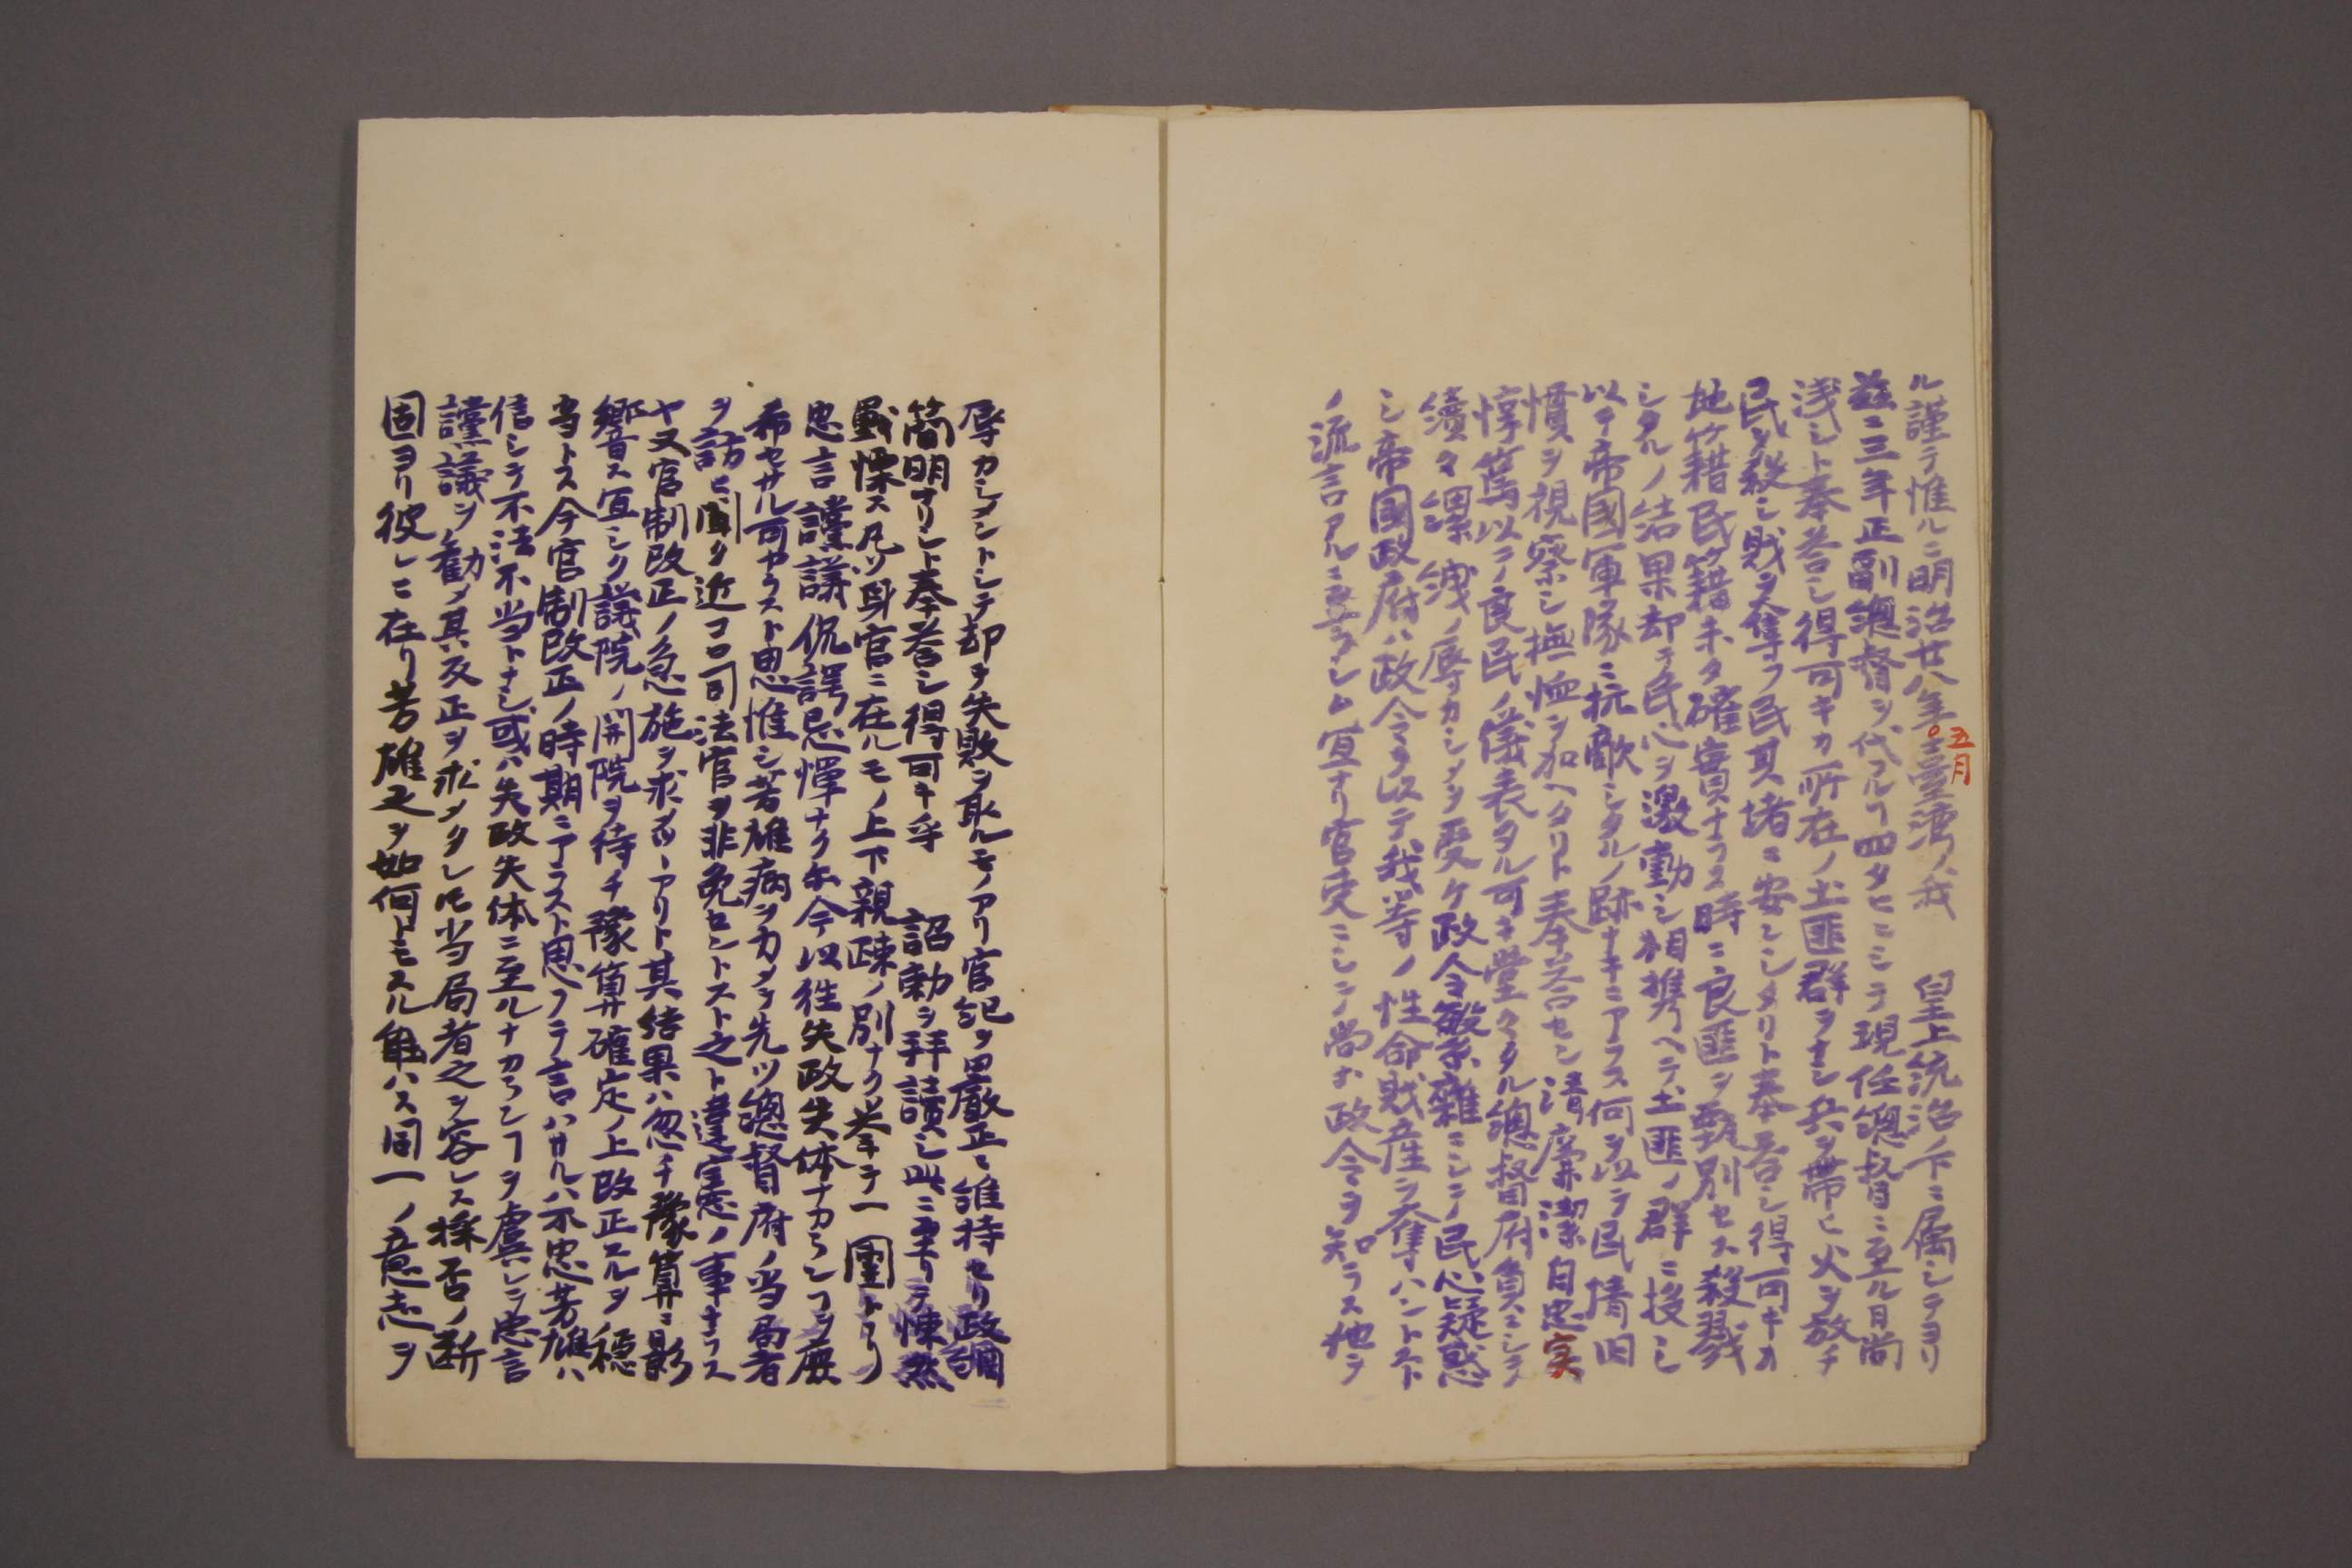 ル謹テ惟ルニ明治廿八年五月臺湾ノ我　皇上統治ノ下ニ属シテヨリ
茲ニ三年正副總督ヲ代フルヿ四タヒニシテ現任總督ニ至ル日尚
浅シト奉答シ得可キカ所在ノ土匪群ヲナシ兵ヲ帯ヒ火ヲ放チ
民ヲ殺シ財ヲ奪フ民其堵ニ安シシタリト奉答シ得可キカ
地籍民籍未タ確實ナラス時ニ良匪ヲ甄別セス殺戮
シタルノ結果却テ民心ヲ激動シ相携ヘテ土匪ノ群ニ投シ
以テ帝國軍隊ニ抗敵シタルノ跡ナキニアラス何ヲ以テ民情旧
慣ヲ視察シ撫恤ヲ加ヘタリト奉答セン清廉潔白忠実
惇篤以テ良民ノ儀表タル可キ堂々タル總督府員ニシテ
續々縲絏ノ辱カシメヲ受ケ政令繁雜ニシテ民心疑惑
シ帝國政府ハ政令ヲ以テ我等ノ性命財産ヲ奪ハントスト
ノ流言アルニ至ラシム宜ナリ官吏ニシテ尚ホ政令ヲ知ラス他ヲ
辱カシメントシテ却テ失敗ヲ取ルモノアリ官紀ヲ嚴正ニ維持セリ政綱
簡明ナリト奉答シ得可キ乎　詔勅ヲ拝讀シ此ニ至リテ悚然
戰慄ス凡ソ身官ニ在ルモノ上下親疎ノ別ナク挙テ一團トナリ
忠言讜議侃諤忌憚ナク今以徃失政失体ナカランヿヲ庶
希セサル可ヤラスト思惟シ芳雄病ヲカメテ先ツ總督府ノ当局者
ヲ訪ヒ聞ク近コロ司法官ヲ非免セントスト之ト違憲ノ事ナラス
ヤ又官制改正ノ急施ヲ求ムルアリト其結果ハ忽チ豫算ニ影
響ス宜シク議院ノ開院ヲ待チ豫算確定ノ上改正スルヲ穏
当トス今官制改正ノ時期ニアラスト思フテ言ハサルハ不忠芳雄ハ
信シテ不法不当トナシ或ハ失政失体ニ至ルナカランヿヲ虞レテ忠言
讜議ヲ勸メ其反正ヲ求メタレ𪜈当局者之ヲ容レス採否ノ断
固ヨリ彼レニ在リ芳雄之ヲ如何トモスル能ハス同一ノ意志ヲ